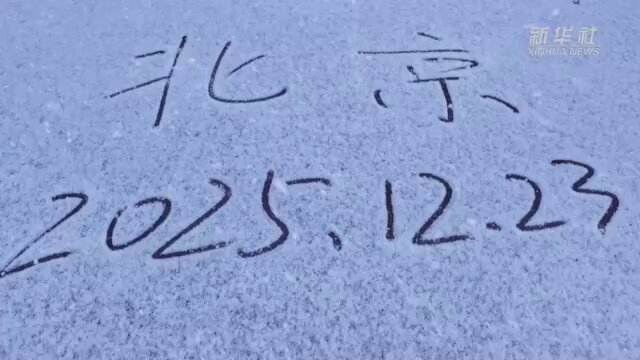 新华社
XINHUA NEWS
北京
2025.12.23